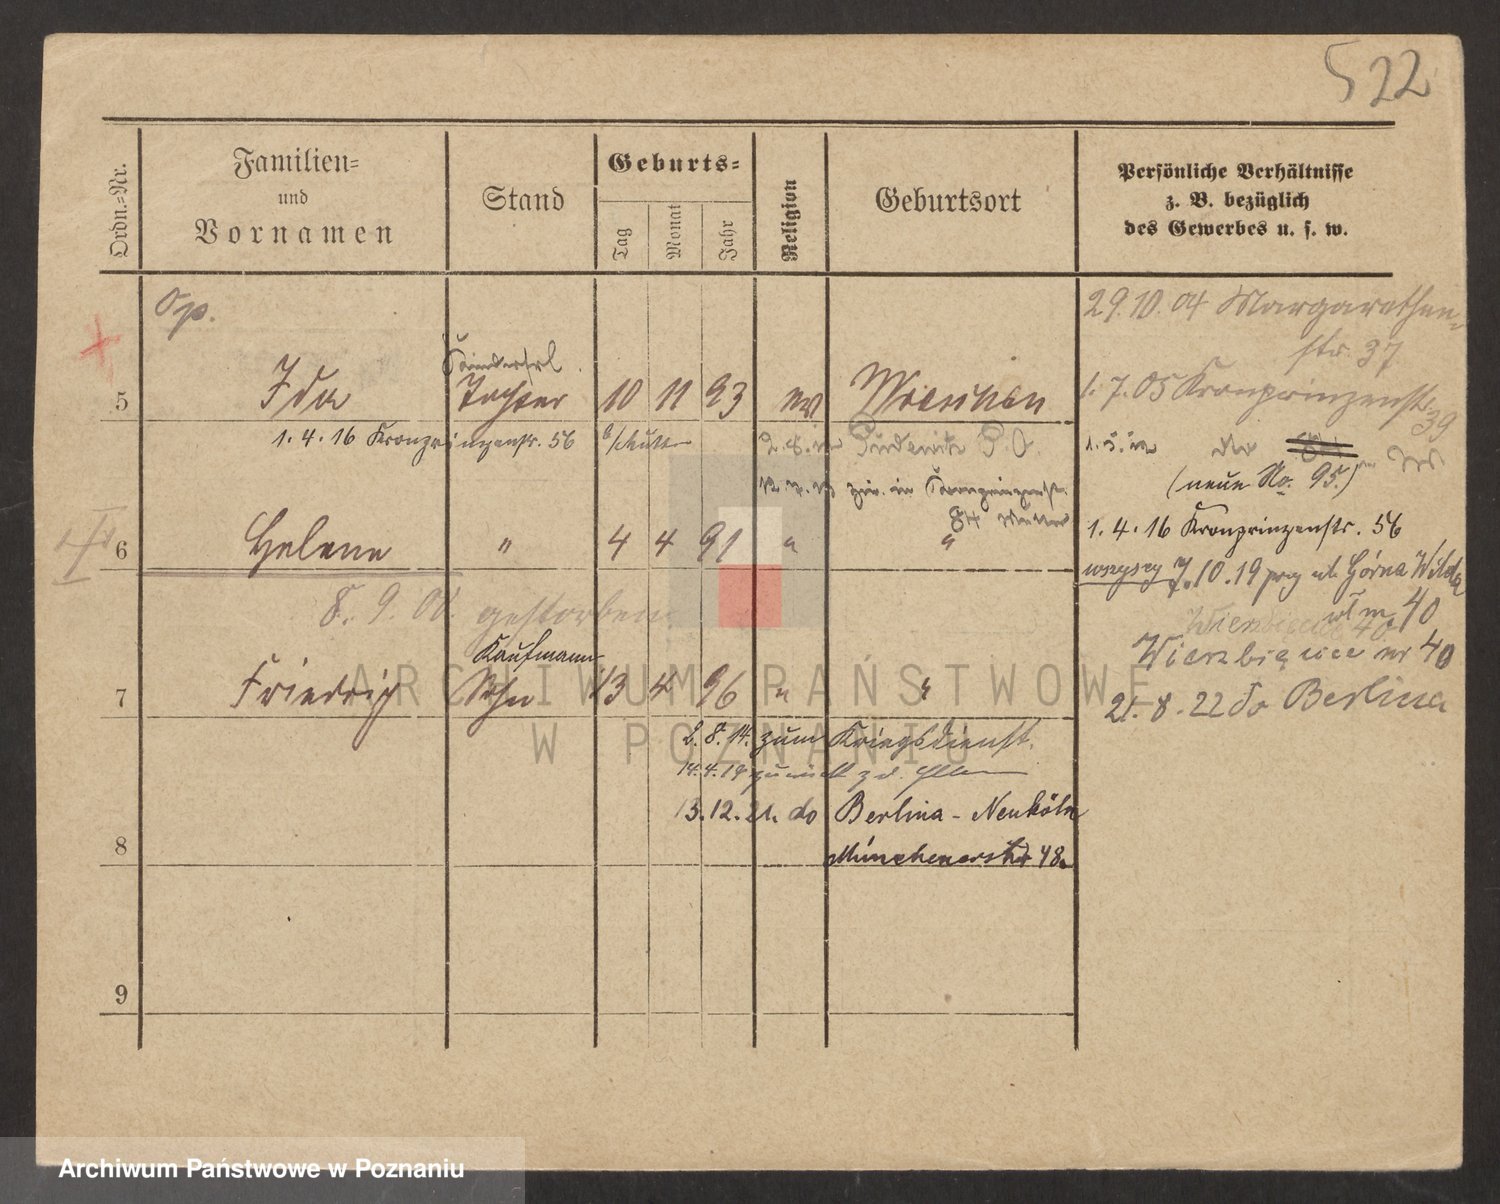 522
Ordn.=Nr.
Familien=
und
Vornamen
Stand
Geburts=
Tag
Monat
Jahr
Religion
Geburtsort
Persönliche Verhältnisse
z. B. bezüglich
des Gewerbes u. s. w.
Op.
29.10.04 Margarethen=
str. 37
5 Ida Tochter 10 11 93 ev
1.7.05 Kronprinzenstr. 39
1.4.16 Kronprinzenstr. 56 b/Mutter
Pudewitz P.O.
(neue No. 95.)
in Kronprinzenstr.
84 Mutter
6 Helene " 4 4 91 " "
1.4.16 Kronprinzenstr. 56
wszyscy 7.10.19 przy ul. Górna Wilda
wł m. 40
8. 9. 00. gestorben
Wierzbięcice 40
Wierzbięcice nr 40
Kaufmann
7 Friedrich Sohn 13 4 96 " "
21.8.22 do Berlina
2.8.14. zum Kriegsdienst.
14.4.19 zurück
13.12.21. do Berlina - Neuköln
Münchenerstr 48a
8
9
ARCHIWUM PAŃSTWOWE
W POZNANIU
Archiwum Państwowe w Poznaniu